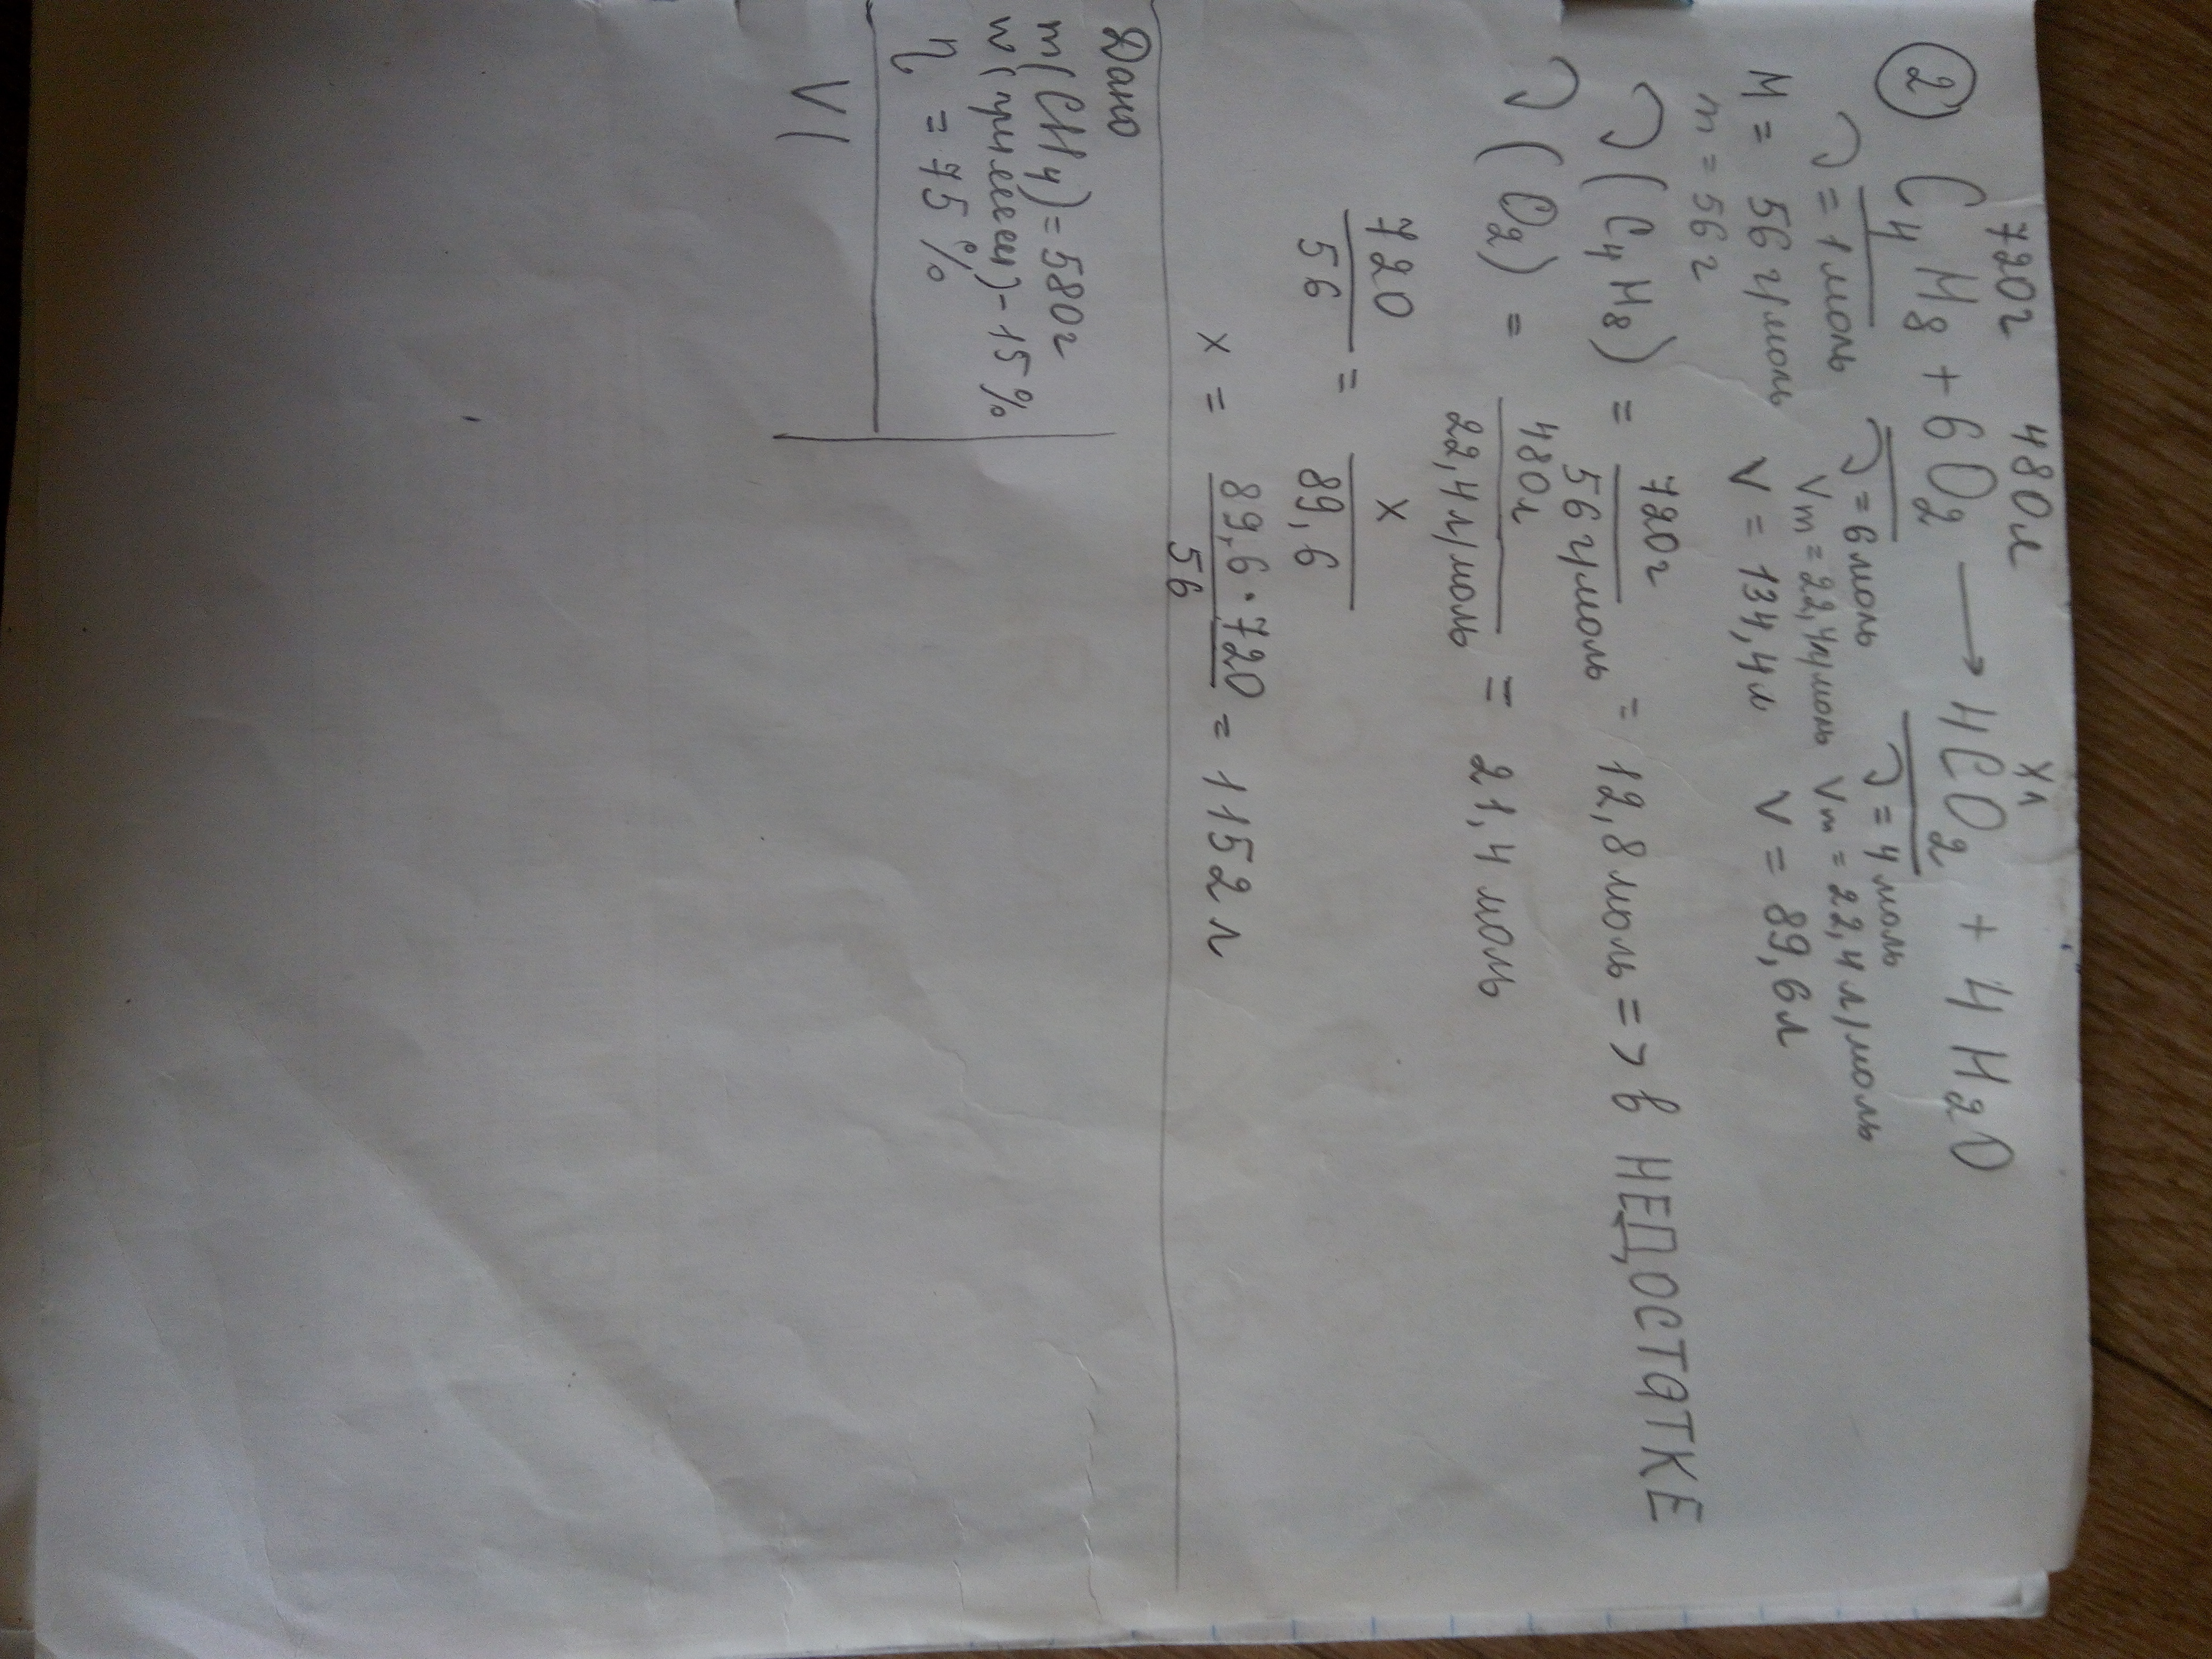 720г 480л xл
② C₄H₈ + 6O₂ → 4CO₂ + 4H₂O
ν = 1 моль ν = 6 моль ν = 4 моль
M = 56 г/моль Vm = 22,4 л/моль Vm = 22,4 л/моль
m = 56 г V = 134,4 л V = 89,6 л
ν (C₄H₈) = 720г / 56 г/моль = 12,8 моль => в НЕДОСТАТКЕ
ν (O₂) = 480л / 22,4 л/моль = 21,4 моль
720 / 56 = x / 89,6
x = 89,6 · 720 / 56 = 1152 л
Дано
m(CH₄) = 580г
w(примеси) - 15%
η = 75%
V(